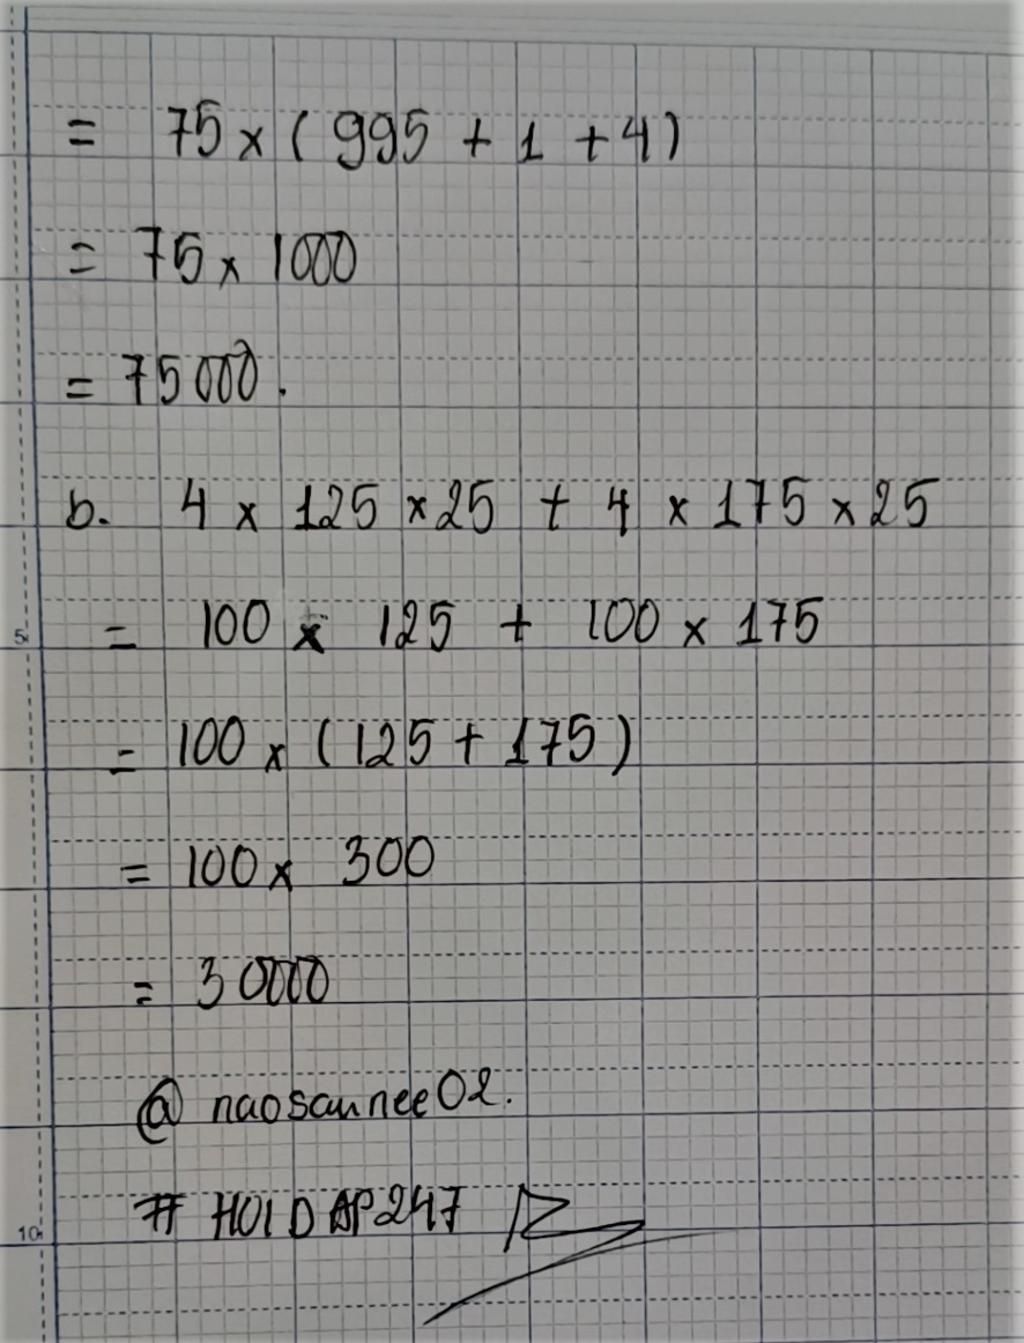 = 75 x ( 995 + 1 + 4 )
= 75 x 1000
= 75000.
b. 4 x 125 x 25 + 4 x 175 x 25
5
= 100 x 125 + 100 x 175
= 100 x ( 125 + 175 )
= 100 x 300
= 30000
@ naosaunee02.
# HOIDAP247
10